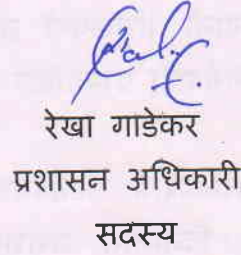 रेखा गाडेकर
प्रशासन अधिकारी
सदस्य